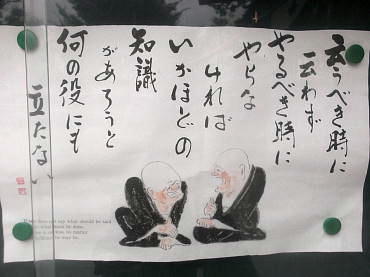 云うべき時に
云わず
やるべき時に
やらな
ければ
いかほどの
知識
があろうと
何の役にも
立たない